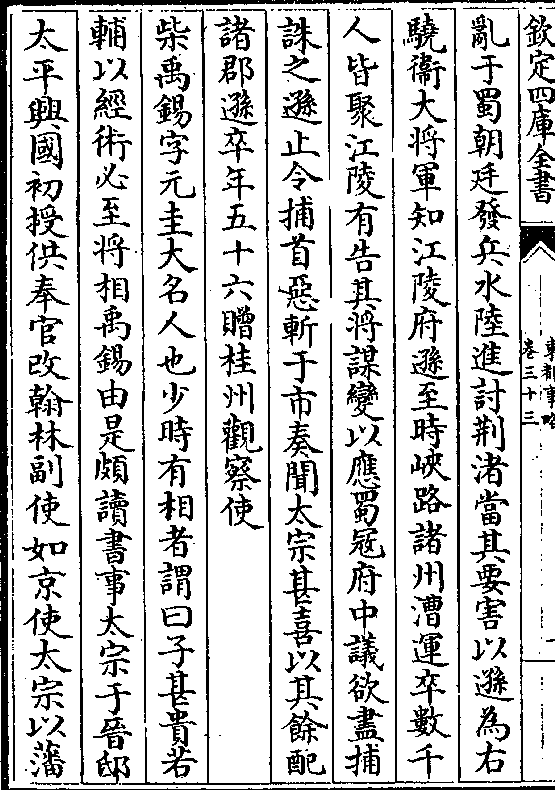 欽定四庫全書
東都事略
卷三十三
亂于蜀朝廷發兵水陸進討荆渚當其要害以遜為右
驍衞大將軍知江陵府遜至時峽路諸州漕運卒數千
人皆聚江陵有告其將謀變以應蜀冦府中議欲盡捕
誅之遜止令捕首惡斬于市奏聞太宗甚喜以其餘配
諸郡遜卒年五十六贈桂州觀察使
柴禹錫字元圭大名人也少時有相者謂曰子甚貴若
輔以經術必至将相禹錫由是頗讀書事太宗于晉邸
太平興國初授供奉官改翰林副使如京使太宗以藩